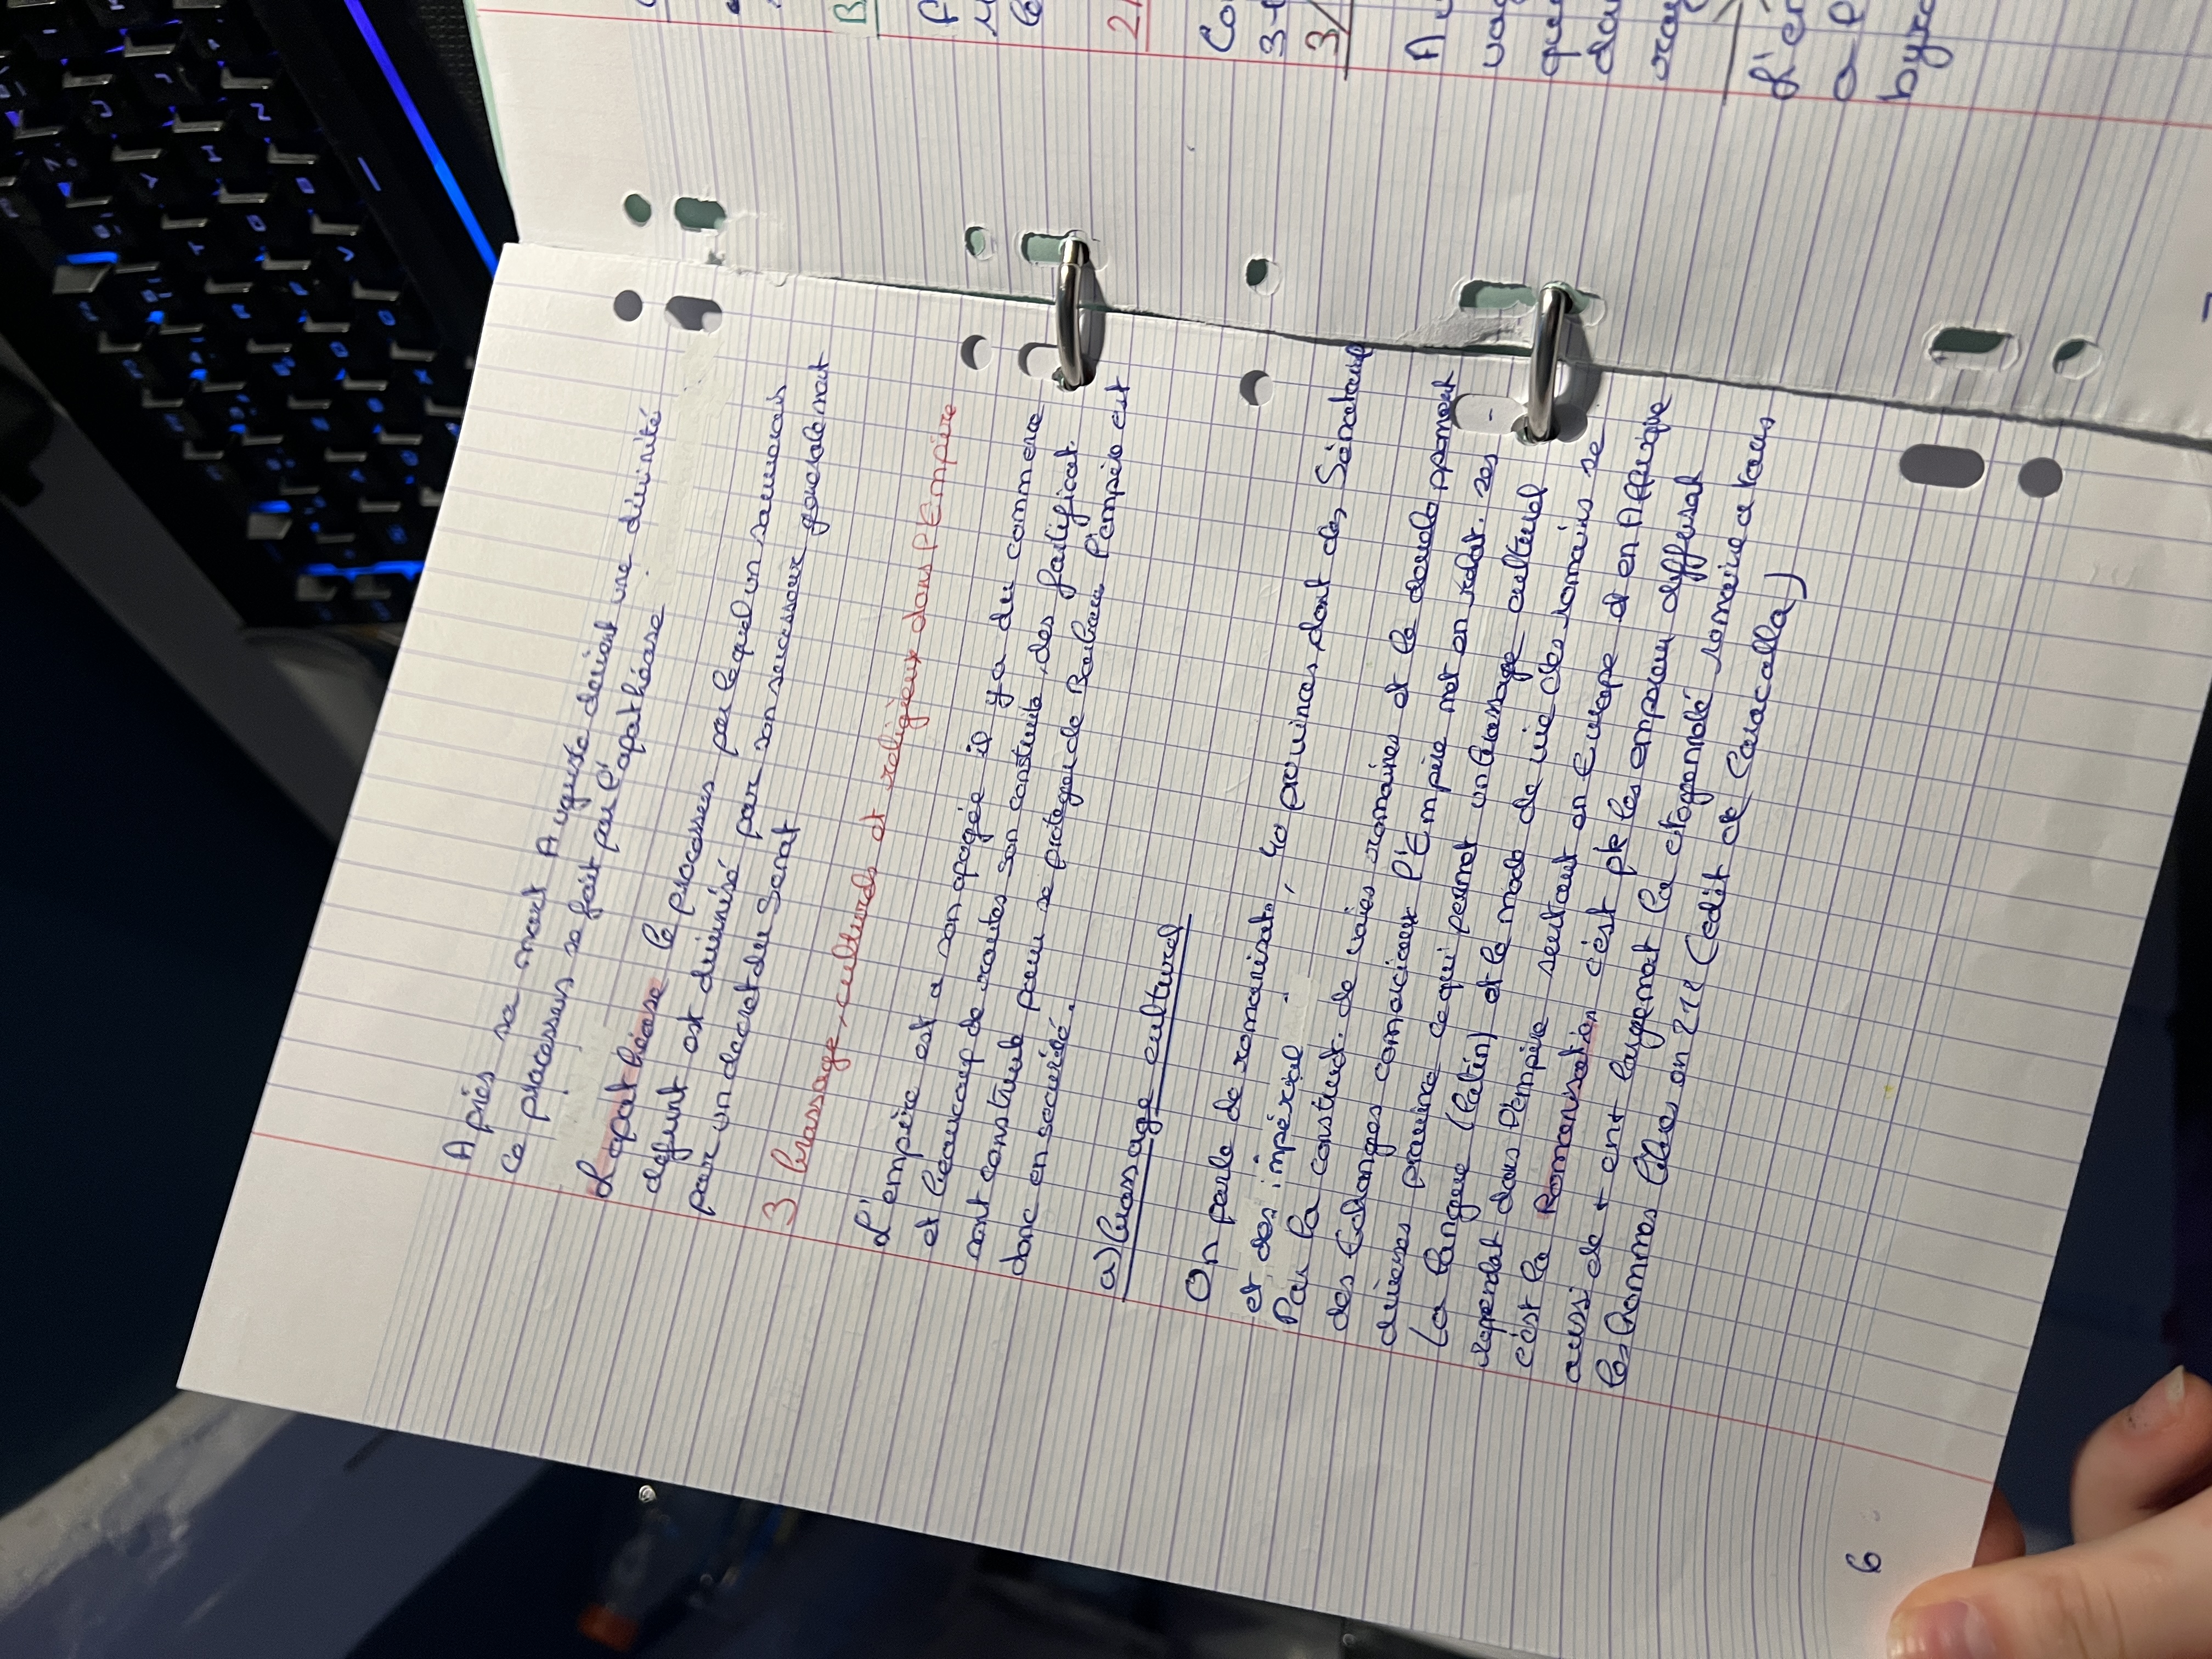 Après sa mort Auguste devient une divinité
Ce processus se fait par l'apothéose.
L'apothéose le processus par lequel un souverain
defunt est divinisé par son successeur generalement
par un decret du Senat
3 brassage, culturels et religieux dans l'Empire
L'empire est a son apogée il y a du commerce
et beaucoup de routes son construite, des fortificat.
sont construite pour se proteger de Barbare l'empire est
donc en securité.
a) brassage culturel
On parle de romanisat., 40 provinces dont des Sénatorial
et des impérial
Par la construct. de voies romaines et le developpement
des Echanges comerciaux l'Empire met en relat. ses
diverses province ce qui permet un brassage culturel
La langue (latin) et le mode de vie des romains se
repandent dans l'empire surtout en Europe et en Affrique
c'est la Romanisation c'est pk les empereur diffusent
aussi de + en + largement la citoyenneté romaine a tous
les hommes libres en 212 (edit de Caracalla)
6